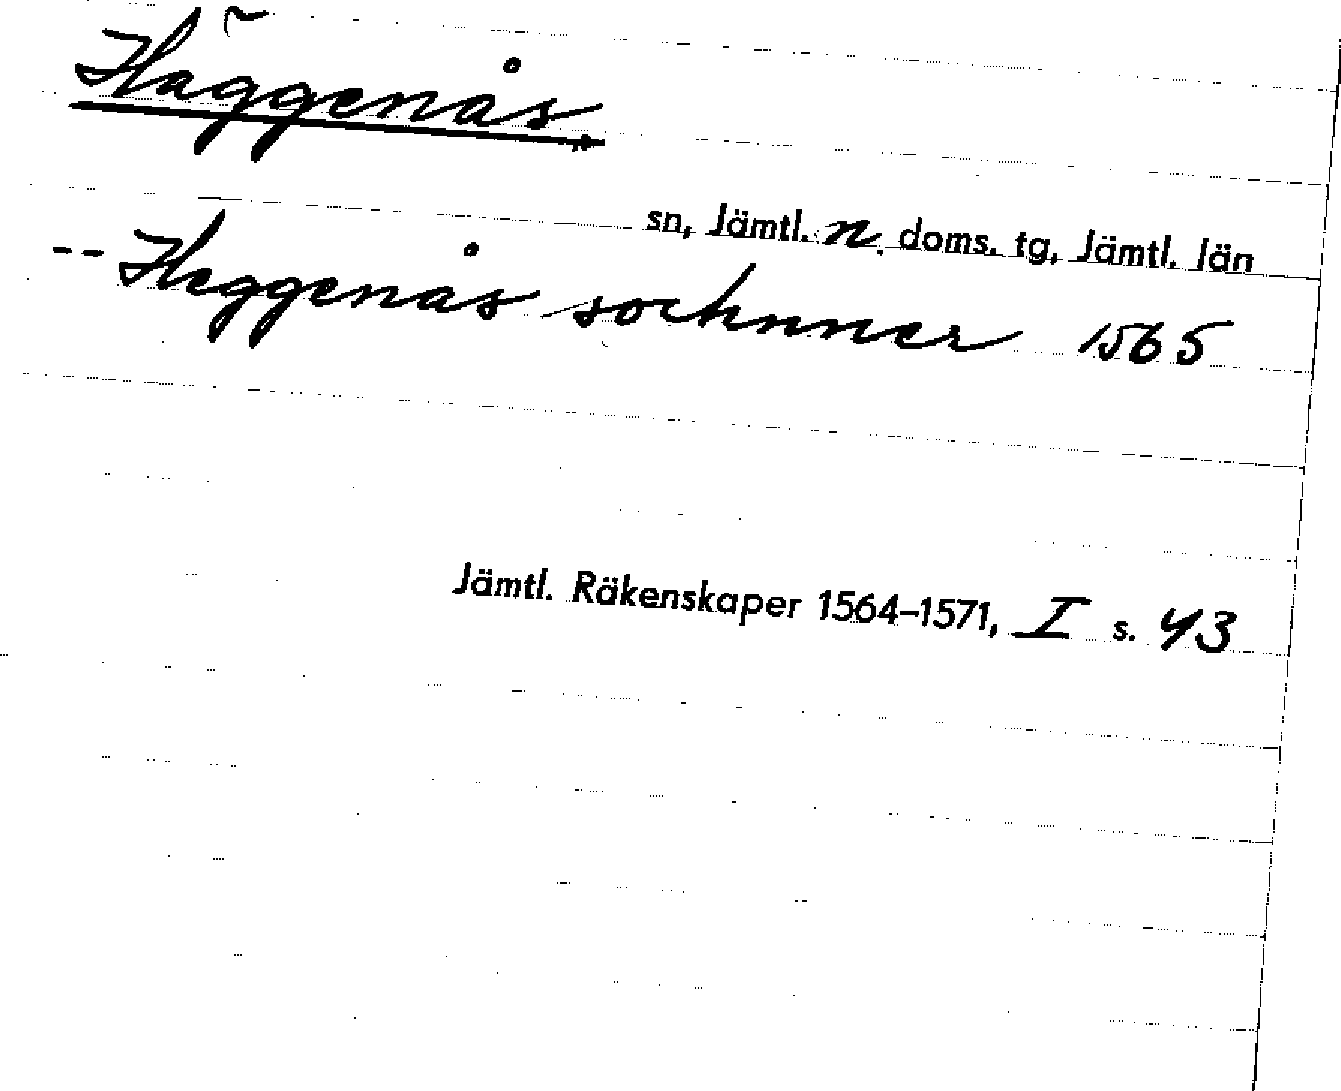 Häggenås
sn, Jämtl. n. doms. tg, Jämtl. län
-- Heggenås sochnner 1565
Jämtl. Räkenskaper 1564-1571, I s. 43